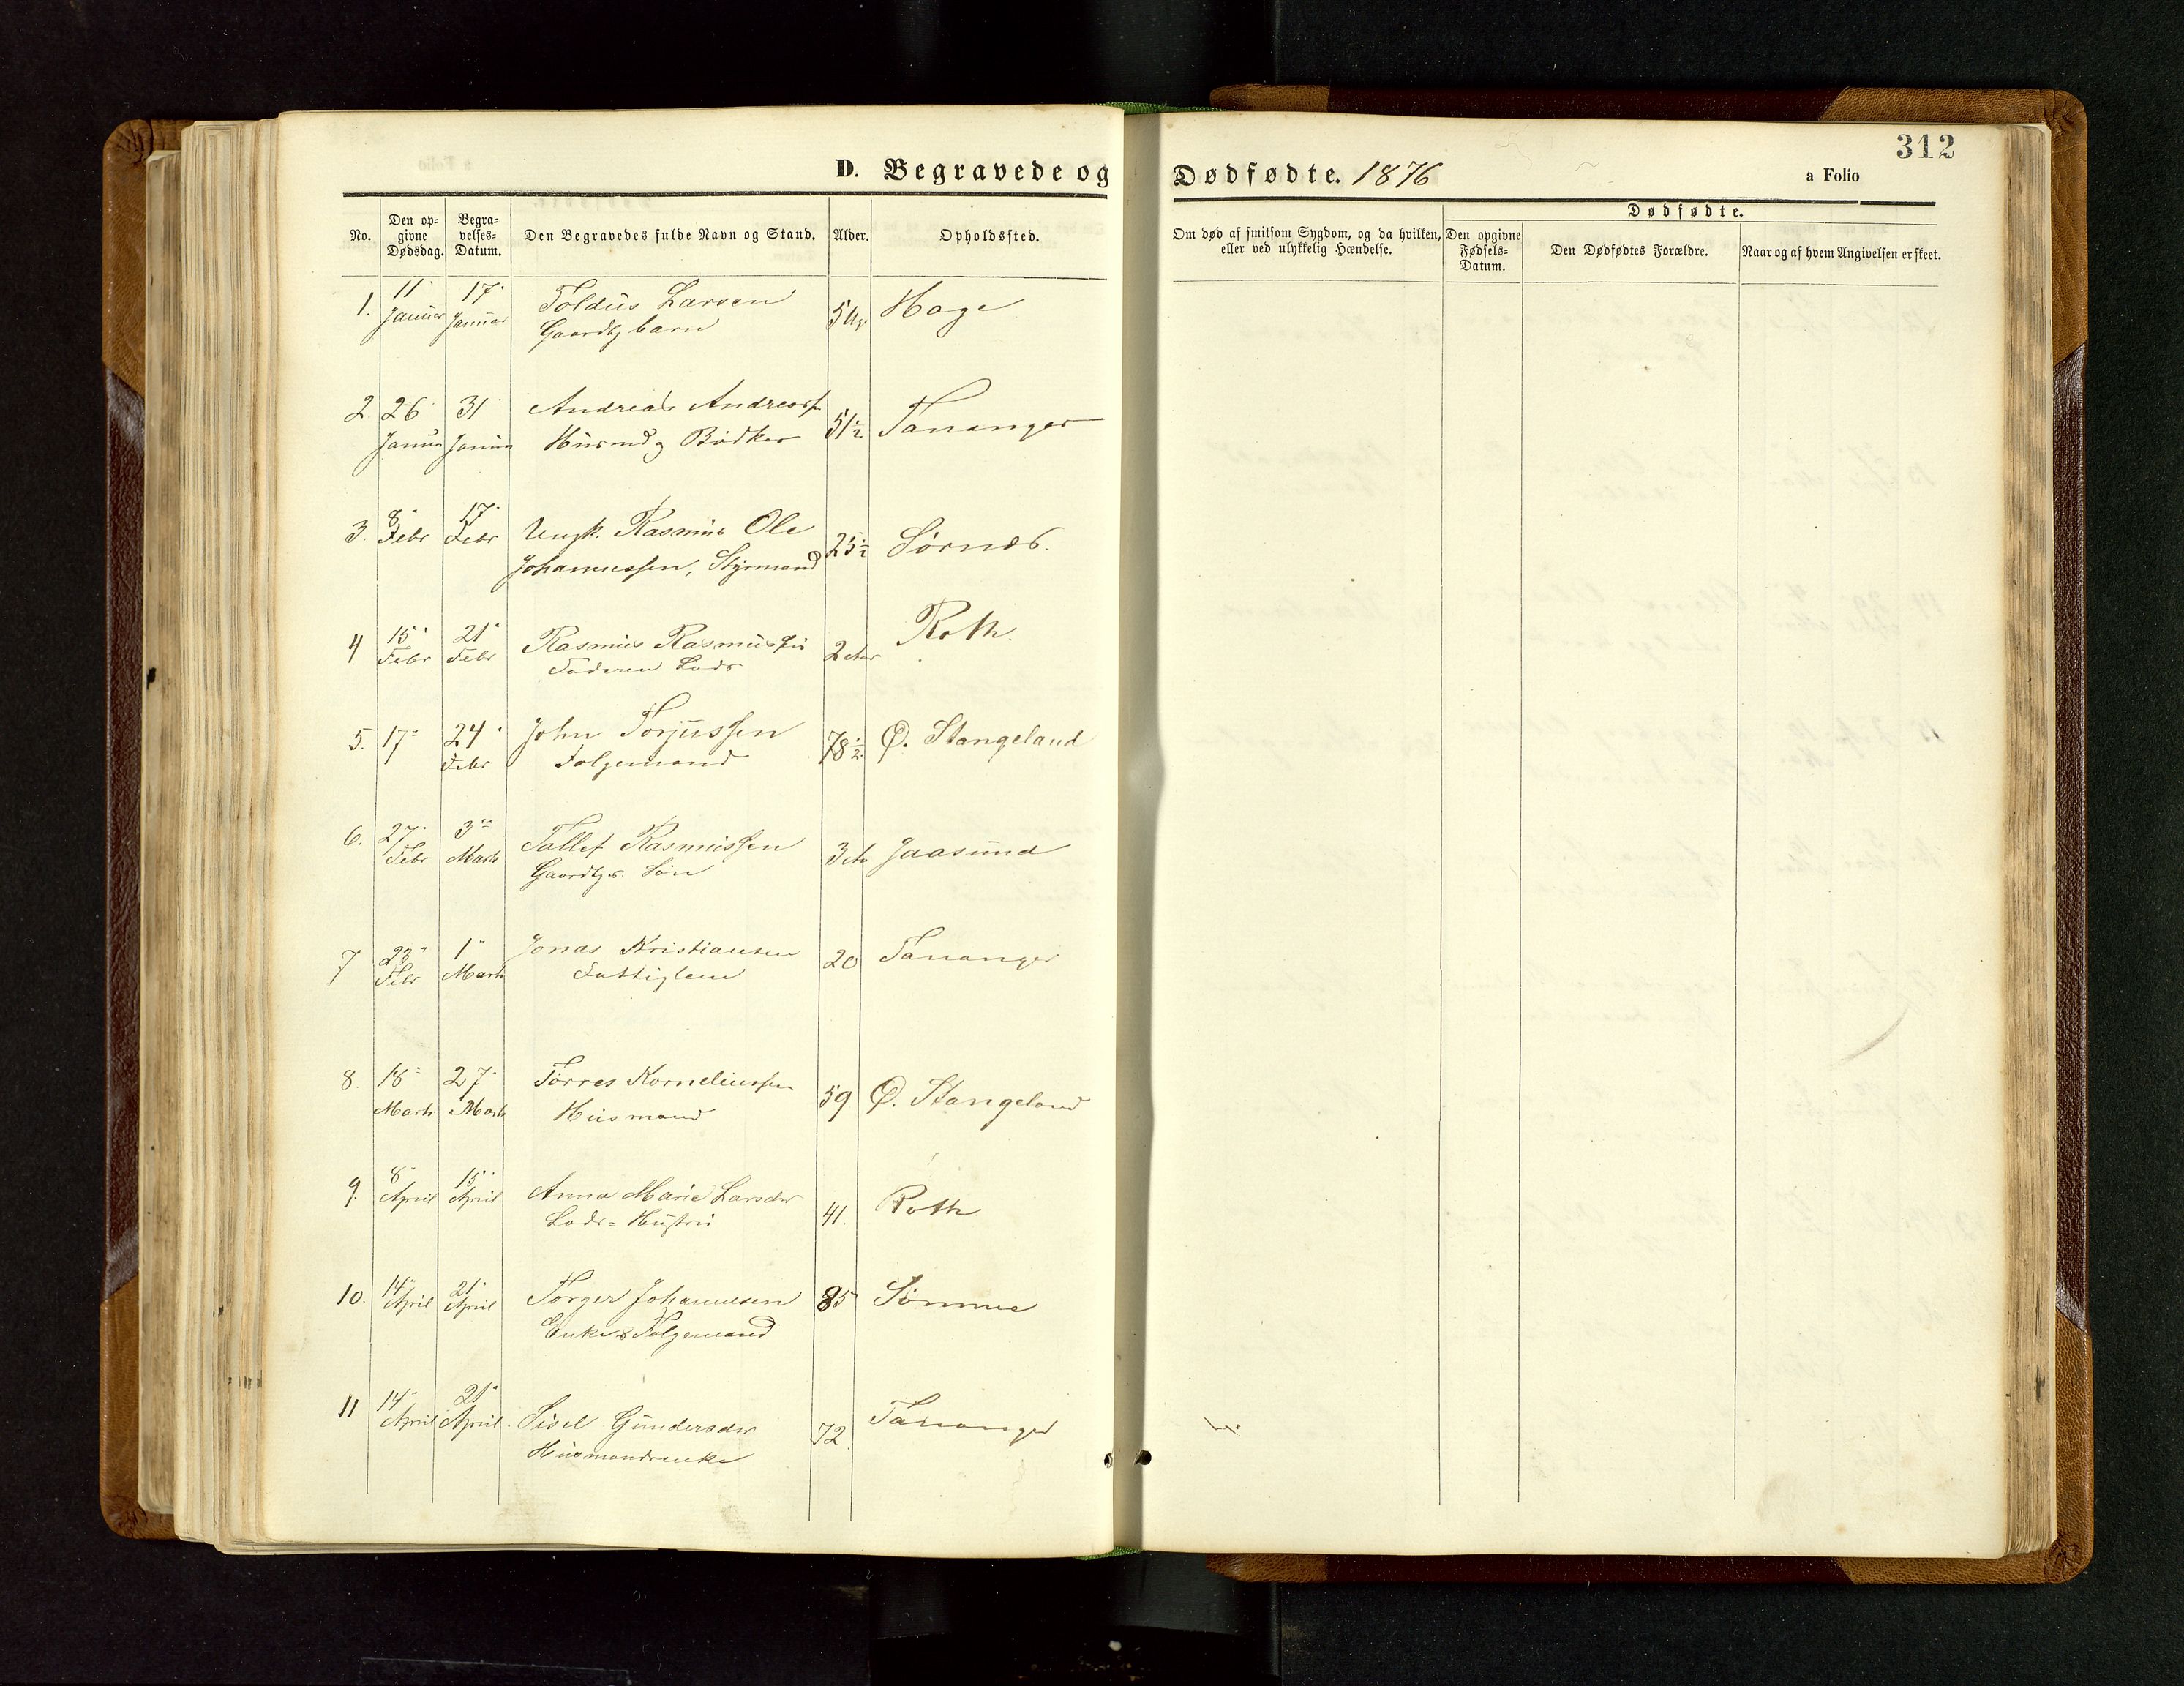 312
D. Begravede og Dødfødte. 1876
a Folio
No.
Den op-
givne
Dødsdag.
Begra-
velses-
Datum.
Den Begravedes fulde Navn og Stand.
Alder.
Opholdssted.
Om død af smitsom Sygdom, og da hvilken,
eller ved ulykkelig Hændelse.
Dødfødte.
Den opgivne
Fødsels-
Datum.
Den Dødfødtes Forældre.
Naar og af hvem Angivelsen er skeet.
1. 11 17 Toldus Larsen 5 Hage
Januar Januar Gaardbg barn
2. 26 31 Andreas Andreass. 51½ Tananger
Januar Januar Husmd og Bødker
3. 8 17 Ungk. Rasmus Ole 25½ Sørnæs.
Febr Febr Johannessen, Styrmand
4 15 21 Rasmus Rasmussen 2 Roth.
Febr Febr Faderen Lods
5. 17 24 John Torjussen 78½ Ø. Stangeland
Febr Folgemand
6. 27 3 Tollef Rasmussen 3 Jaasund
Febr Marts Gaardbgs. Søn
7 23 1 Jonas Kristiansen 20 Tananger
Febr Marts Fattiglem
8. 18 27 Tørres Korneliussen 59 Ø. Stangeland
Marts Marts Husmand
9. 8 15 Anna Marie Larsdtr 41. Roth
April April Lods-Hustru
10. 14 21 Torger Johannesen 85 Sømme
April April Enke & Folgemand
11 14 21 Sisel Gundersdtr 72 Tananger
April April Husmandsenke